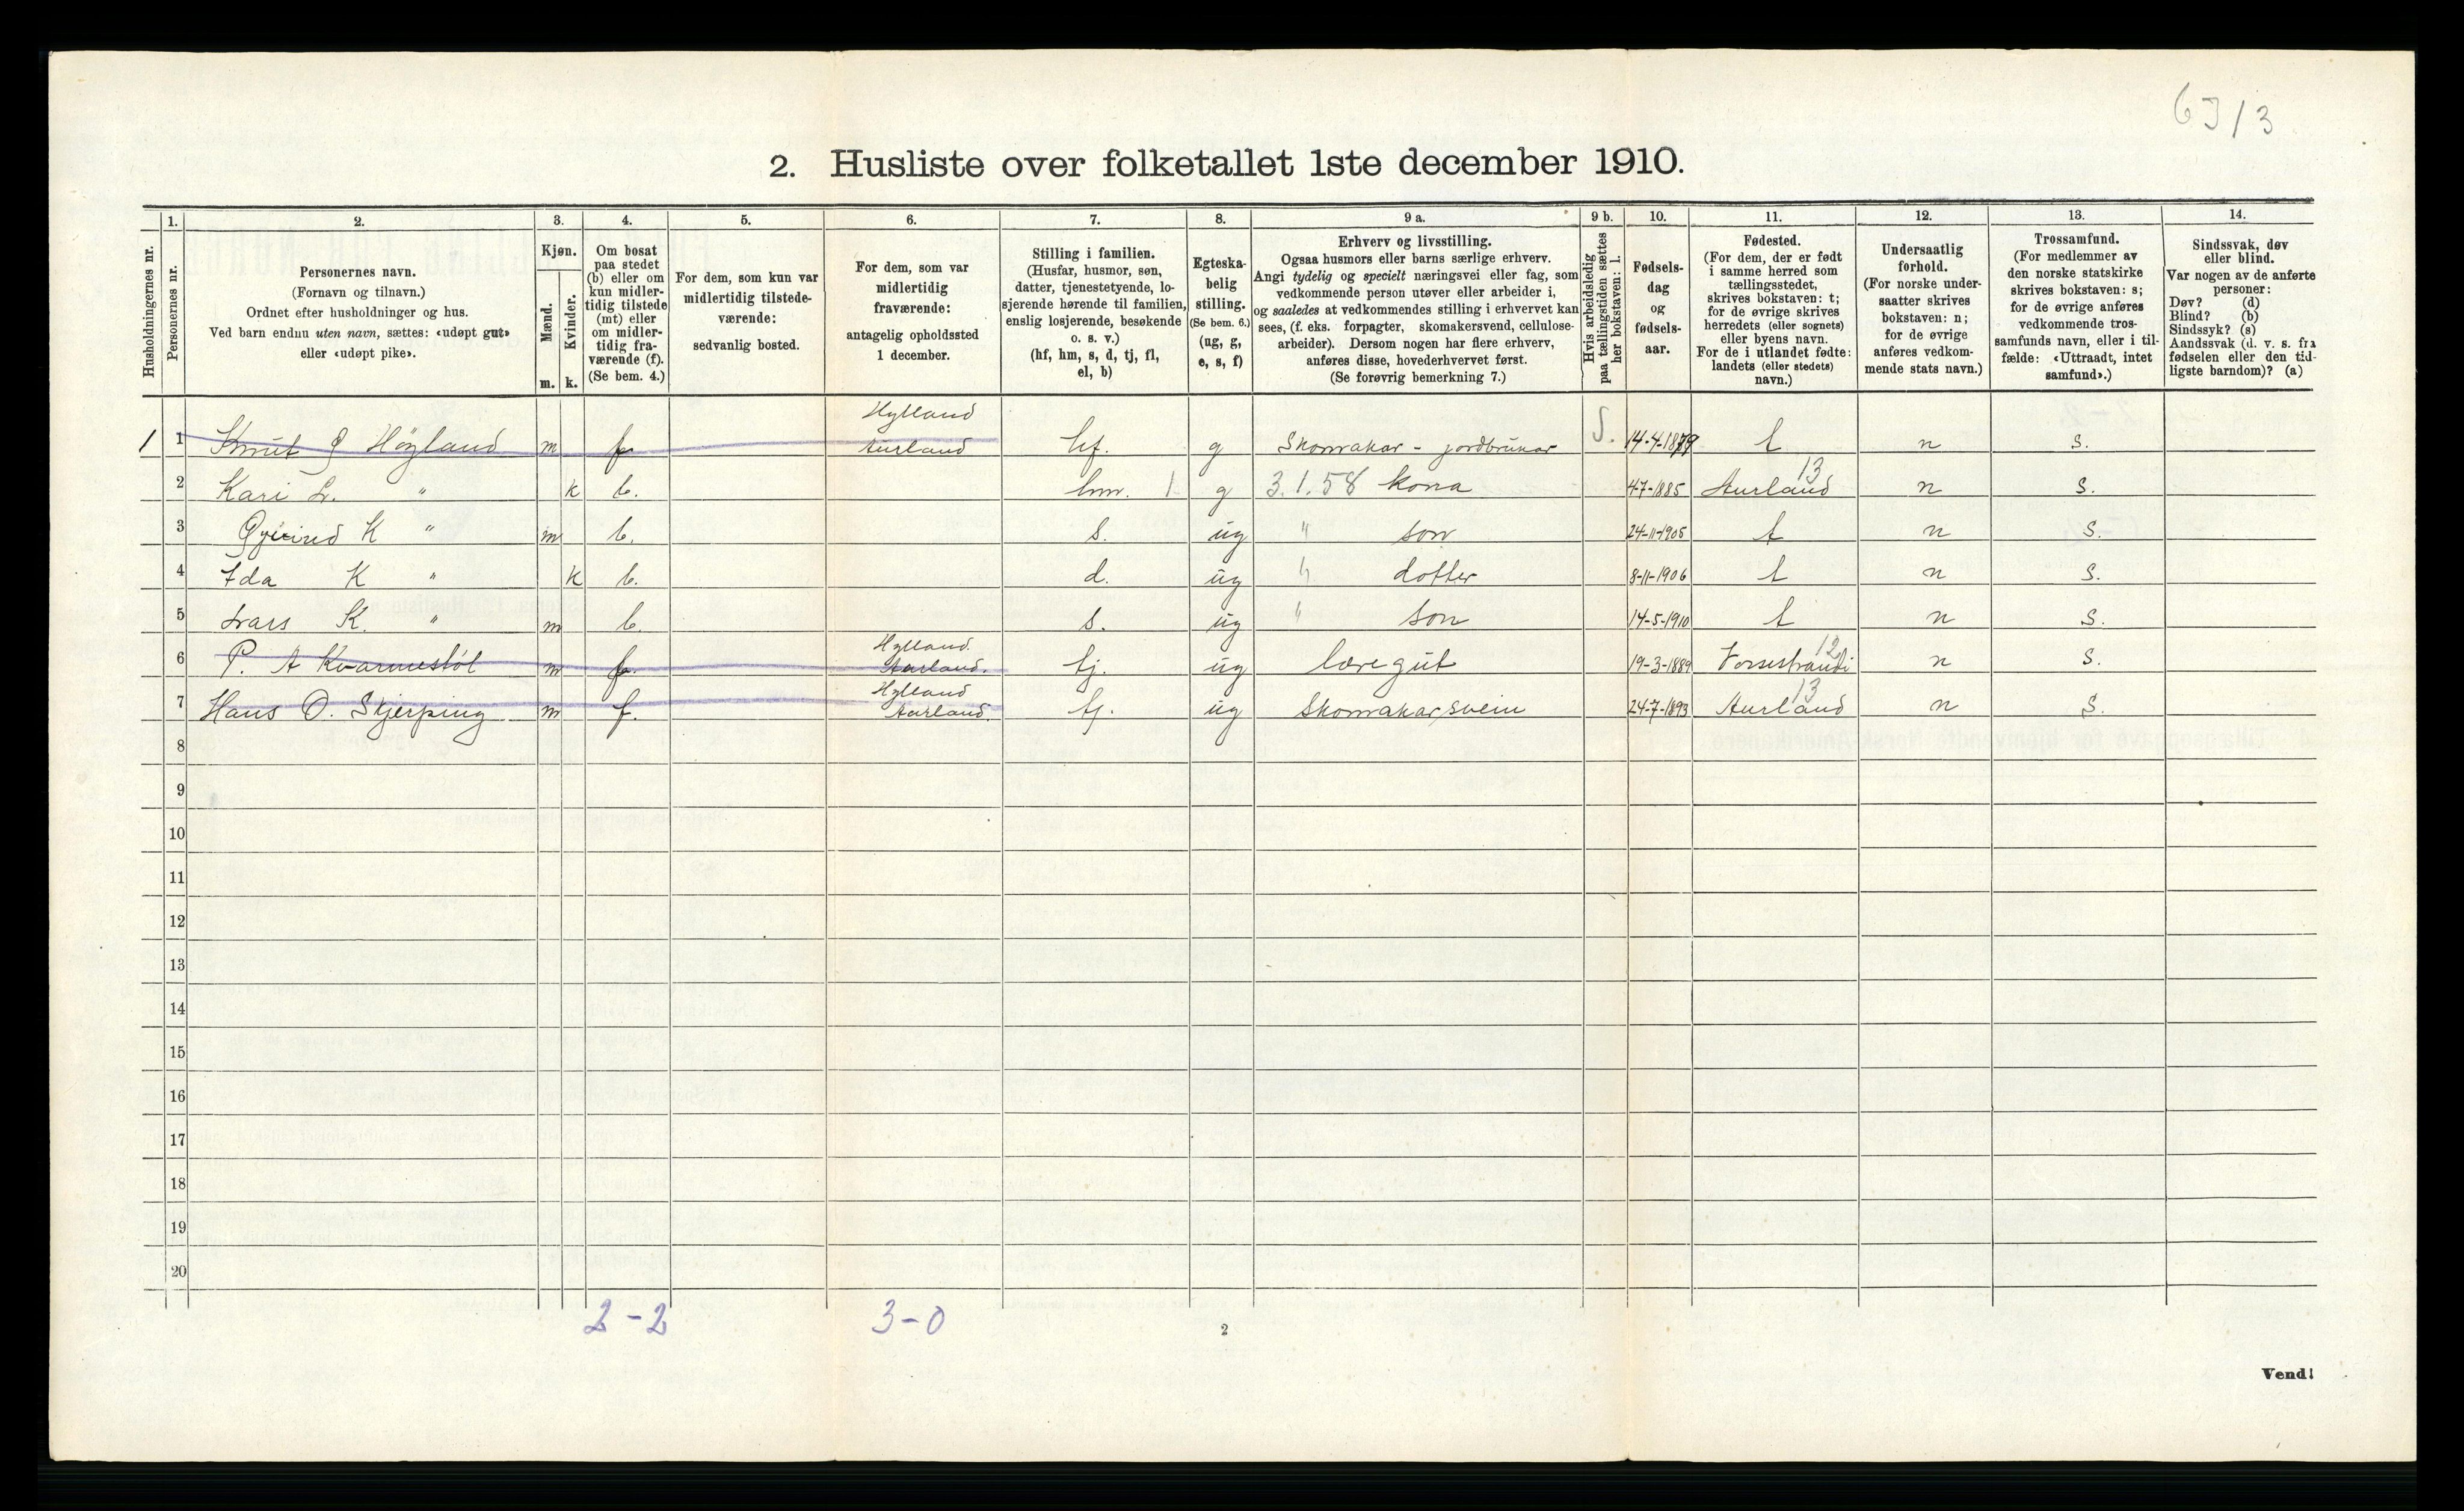 63/3
2. Husliste over folketallet 1ste december 1910.
Husholdningernes nr.
1.
Personernes nr.
2.
Personernes navn.
(Fornavn og tilnavn.)
Ordnet efter husholdninger og hus.
Ved barn endnu uten navn, sættes: «udøpt gut»
eller «udøpt pike».
3.
Kjøn.
Mænd.
Kvinder.
m. k.
4.
Om bosat
paa stedet
(b) eller om
kun midler-
tidig tilstede
(mt) eller
om midler-
tidig fra-
værende (f).
(Se bem. 4.)
5.
For dem, som kun var
midlertidig tilstede-
værende:
sedvanlig bosted.
6.
For dem, som var
midlertidig
fraværende:
antagelig opholdssted
1 december.
7.
Stilling i familien.
(Husfar, husmor, søn,
datter, tjenestetyende, lo-
sjerende hørende til familien,
enslig losjerende, besøkende
o. s. v.)
(hf, hm, s, d, tj, fl,
el, b)
8.
Egteska-
belig
stilling.
(Se bem. 6.)
(ug, g,
e, s, f)
9 a.
Erhverv og livsstilling.
Ogsaa husmors eller barns særlige erhverv.
Angi tydelig og specielt næringsvei eller fag, som
vedkommende person utøver eller arbeider i,
og saaledes at vedkommendes stilling i erhvervet kan
sees, (f. eks. forpagter, skomakersvend, cellulose-
arbeider). Dersom nogen har flere erhverv,
anføres disse, hovederhvervet først.
(Se forøvrig bemerkning 7.)
9 b.
Hvis arbeidsledig
paa tællingstiden sættes
her bokstaven: l.
10.
Fødsels-
dag
og
fødsels-
aar.
11.
Fødested.
(For dem, der er født
i samme herred som
tællingsstedet,
skrives bokstaven: t;
for de øvrige skrives
herredets (eller sognets)
eller byens navn.
For de i utlandet fødte:
landets (eller stedets)
navn.)
12.
Undersaatlig
forhold.
(For norske under-
saatter skrives
bokstaven: n;
for de øvrige
anføres vedkom-
mende stats navn.)
13.
Trossamfund.
(For medlemmer av
den norske statskirke
skrives bokstaven: s;
for de øvrige anføres
vedkommende tros-
samfunds navn, eller i til-
fælde: «Uttraadt, intet
samfund».)
14.
Sindssvak, døv
eller blind.
Var nogen av de anførte
personer:
Døv? (d)
Blind? (b)
Sindssyk? (s)
Aandssvak (d. v. s. fra
fødselen eller den tid-
ligste barndom)? (a)
Hylland
1 1 Knut G Höyland m f Aurland hf. g Skomakar - jordbrukar S. 14-4-1879 t n s.
2 Kari L. " k b. hm. 1 g 3.1.58 kona 4-7-1885 Aurland 13 n s.
3 Øyvind K " m b. s. ug " son 24-11-1905 t n s.
4 Ida K " k b. d. ug " dotter 8-11-1906 t n s.
5 Lars K. " m b. s. ug " son 14-5-1910 t n s.
Hylland
6 P. A Kvarmestöl m f. Aurland. tj. ug læregut 19-3-1889 Vossestrandi 12 n s.
Hylland
7 Hans O. Skjerping m f. Aurland. tj. ug Skomakarsvein 24-7-1893 Aurland 13 n s.
8
9
10
11
12
13
14
15
16
17
18
19
20
2-2 3-0
2
Vend!